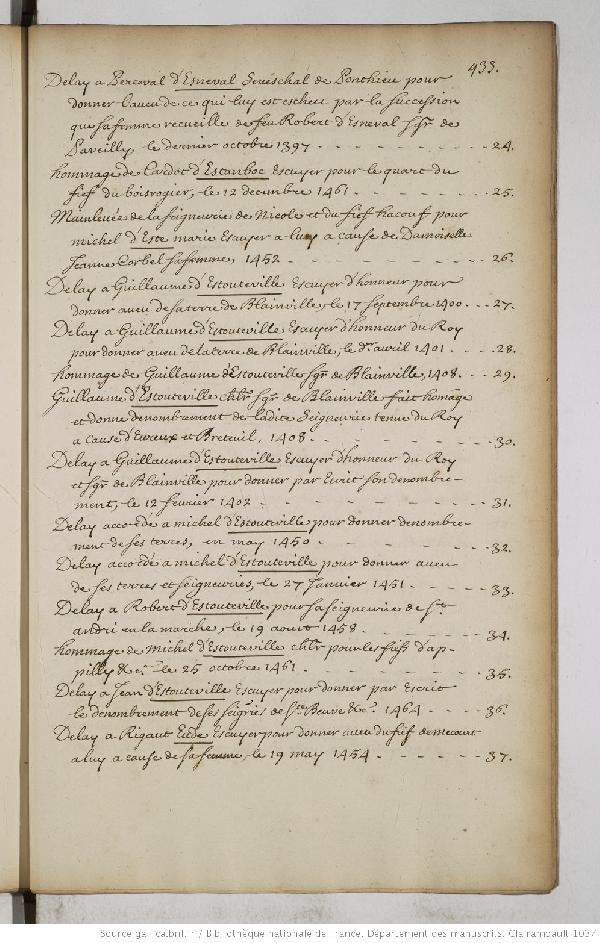 433.
Delay a Perceval d'Esneval Seneschal de Ponthieu pour
donner l'aveu de ce qui luy est escheu par la succession
que sa femme recueille de feu Robert d'Esneval sgr. de
Paveilly le dernier octobre 1397 - - - - - - - 24.
hommage de Cardot d'Estanboc Escuyer pour le quart du
fief du boisrogier, le 12 decembre 1461 - - - - - - 25.
Mainlevée de la seigneurie de Nicole et du fief hacouf pour
michel d'Este marie Escuyer a luy a cause de Damoiselle
Jeanne Corbel sa femme, 1452 - - - - - - - - 26.
Delay a Guillaume d'Estouteville Escuyer d'honneur pour
donner aveu de sa terre de Blainville, le 17 septembre 1400. - - 27.
Delay a Guillaume d'Estouteville Escuyer d'honneur du Roy
pour donner aveu de la terre de Blainville, le dr. avril 1401. - - - 28.
hommage de Guillaume d'Estouteville sgr. de Blainville, 1408. - - 29.
Guillaume d'Estouteville chlr. sgr. de Blainville fait homage
et donne denombrement de ladite Seigneurie tenue du Roy
a cause d'Evreux et Breteuil, 1408 - - - - - - - 30.
Delay a Guillaume d'Estouteville Escuyer d'honneur du Roy
et sgr. de Blainville pour donner par Ecrit son denombre-
ment, le 12 fevrier 1402 - - - - - - - - 31.
Delay accordé a michel d'Estouteville pour donner denombre-
ment de ses terres, en may 1450 - - - - - - - 32.
Delay accordé a michel d'Estouteville pour donner aveu
de ses terres et seigneuries, le 27 Janvier 1451 - - - - - 33.
Delay a Robert d'Estouteville pour sa seigneurie de St.
andré en la marche, le 19 aout 1458 - - - - - - 34.
hommage de michel d'Estouteville chlr. pour les fiefs d'ap-
pilly &c. le 25 octobre 1461 - - - - - - - - 35.
Delay a Jean d'Estouteville Escuyer pour donner par Escrit
le denombrement de ses seigries de Ste. Beuve &c. 1464 - - - - 36.
Delay a Rigaut Eude Escuyer pour donner aveu du fief de mecourt
a luy a cause de sa femme, le 19 may 1454 - - - - - - 37.
Source gallica.bnf.fr / Bibliothèque nationale de France. Département des manuscrits. Clairambault 1034